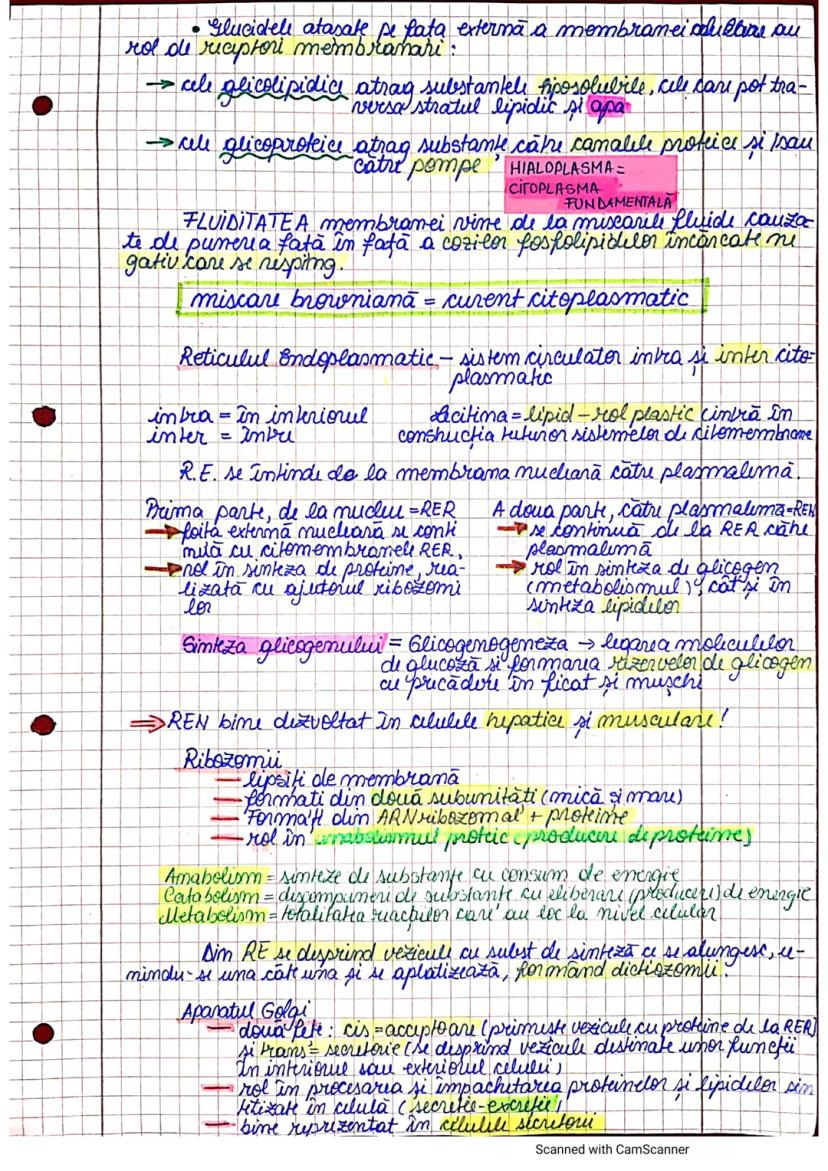 • Glucidele atașate pe fața externă a membranei celulare au
rol de receptori membranari :
→ cele glicolipidice atrag substanțele liposolubile, cele care pot tra-
versa stratul lipidic și apa
→ cele glicoproteice atrag substanțe către canalele proteice și/sau
către pompe
HIALOPLASMA =
CITOPLASMA
FUNDAMENTALĂ
FLUIDITATEA membranei vine de la mișcările fluide cauza-
te de punerea față în față a cozilor fosfolipidelor încărcate ne
gativ care se resping.
mișcare browniană = curent citoplasmatic
Reticulul Endoplasmatic - sistem circulator intra și inter cito-
plasmatic
intra = în interiorul
inter = între
Lecitina = lipid - rol plastic (intră în
construcția tuturor sistemelor de citomembrane
R.E. se întinde de la membrana nucleară către plasmalemă.
Prima parte, de la nucleu = RER
→ foița externă nucleară se conti
nuă cu citomembranele RER.
→ rol în sinteza de proteine, rea-
lizată cu ajutorul ribozomi
lor
A doua parte, către plasmalemă = REN
→ se continuă de la RER către
plasmalemă
→ rol în sinteza de glicogen
(metabolismul), cât și în
sinteza lipidelor
Sinteza glicogenului = Glicogenogeneza → legarea moleculelor
de glucoză și formarea rezervelor de glicogen
cu precădere în ficat și mușchi
⇒ REN bine dezvoltat în celulele hepatice și musculare!
Ribozomii
— lipsiți de membrană
— formați din două subunități (mică și mare)
— Formați din ARN ribozomal + proteine
— rol în anabolismul proteic (producere de proteine)
Anabolism = sinteze de substanțe cu consum de energie
Catabolism = descompuneri de substanțe cu eliberare (producere) de energie
Metabolism = totalitatea reacțiilor care au loc la nivel celular
Din RE se desprind vezicule cu subst de sinteză ce se alungesc, u-
nindu-se una câte una și se aplatizează, formând dictiozomii.
Aparatul Golgi
— două fețe : cis = acceptoare (primește vezicule cu proteine de la RER)
și trans = secretorie (se desprind vezicule destinate unor funcții
în interiorul sau exteriorul celulei)
— rol în procesarea și împachetarea proteinelor și lipidelor sin
tetizate în celulă (secreție-excreție)
— bine reprezentat în celulele secretorii
Scanned with CamScanner